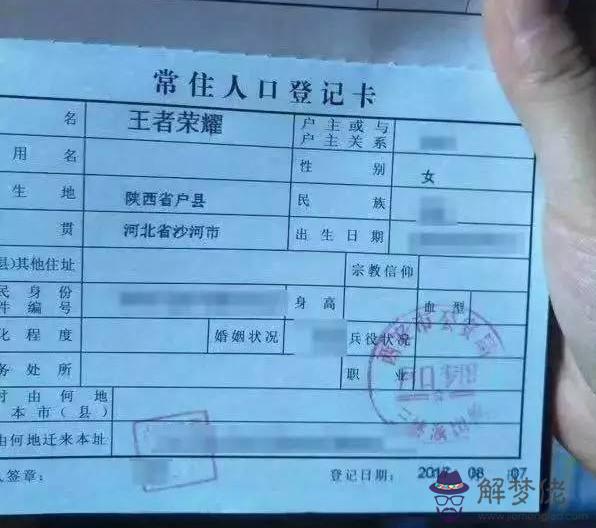 常住人口登记卡
名 王者荣耀 户主或与
户主关系
用名 性别 女
生地 陕西省户县 民族
贯 河北省沙河市 出生日期
县)其他住址 宗教信仰
民身份
件编号 身高 血型
化程度 婚姻状况 兵役状况
务处所 职业
时由何地
本市(县)
由何地迁来本址
人签章: 登记日期: 2017 08 07
解梦佬